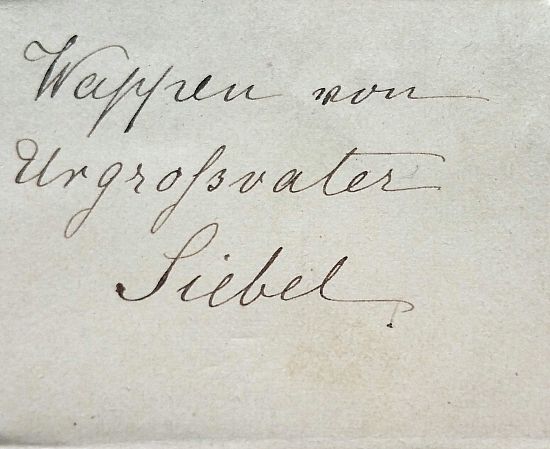 Wappen von
Urgroßvater
Siebel.